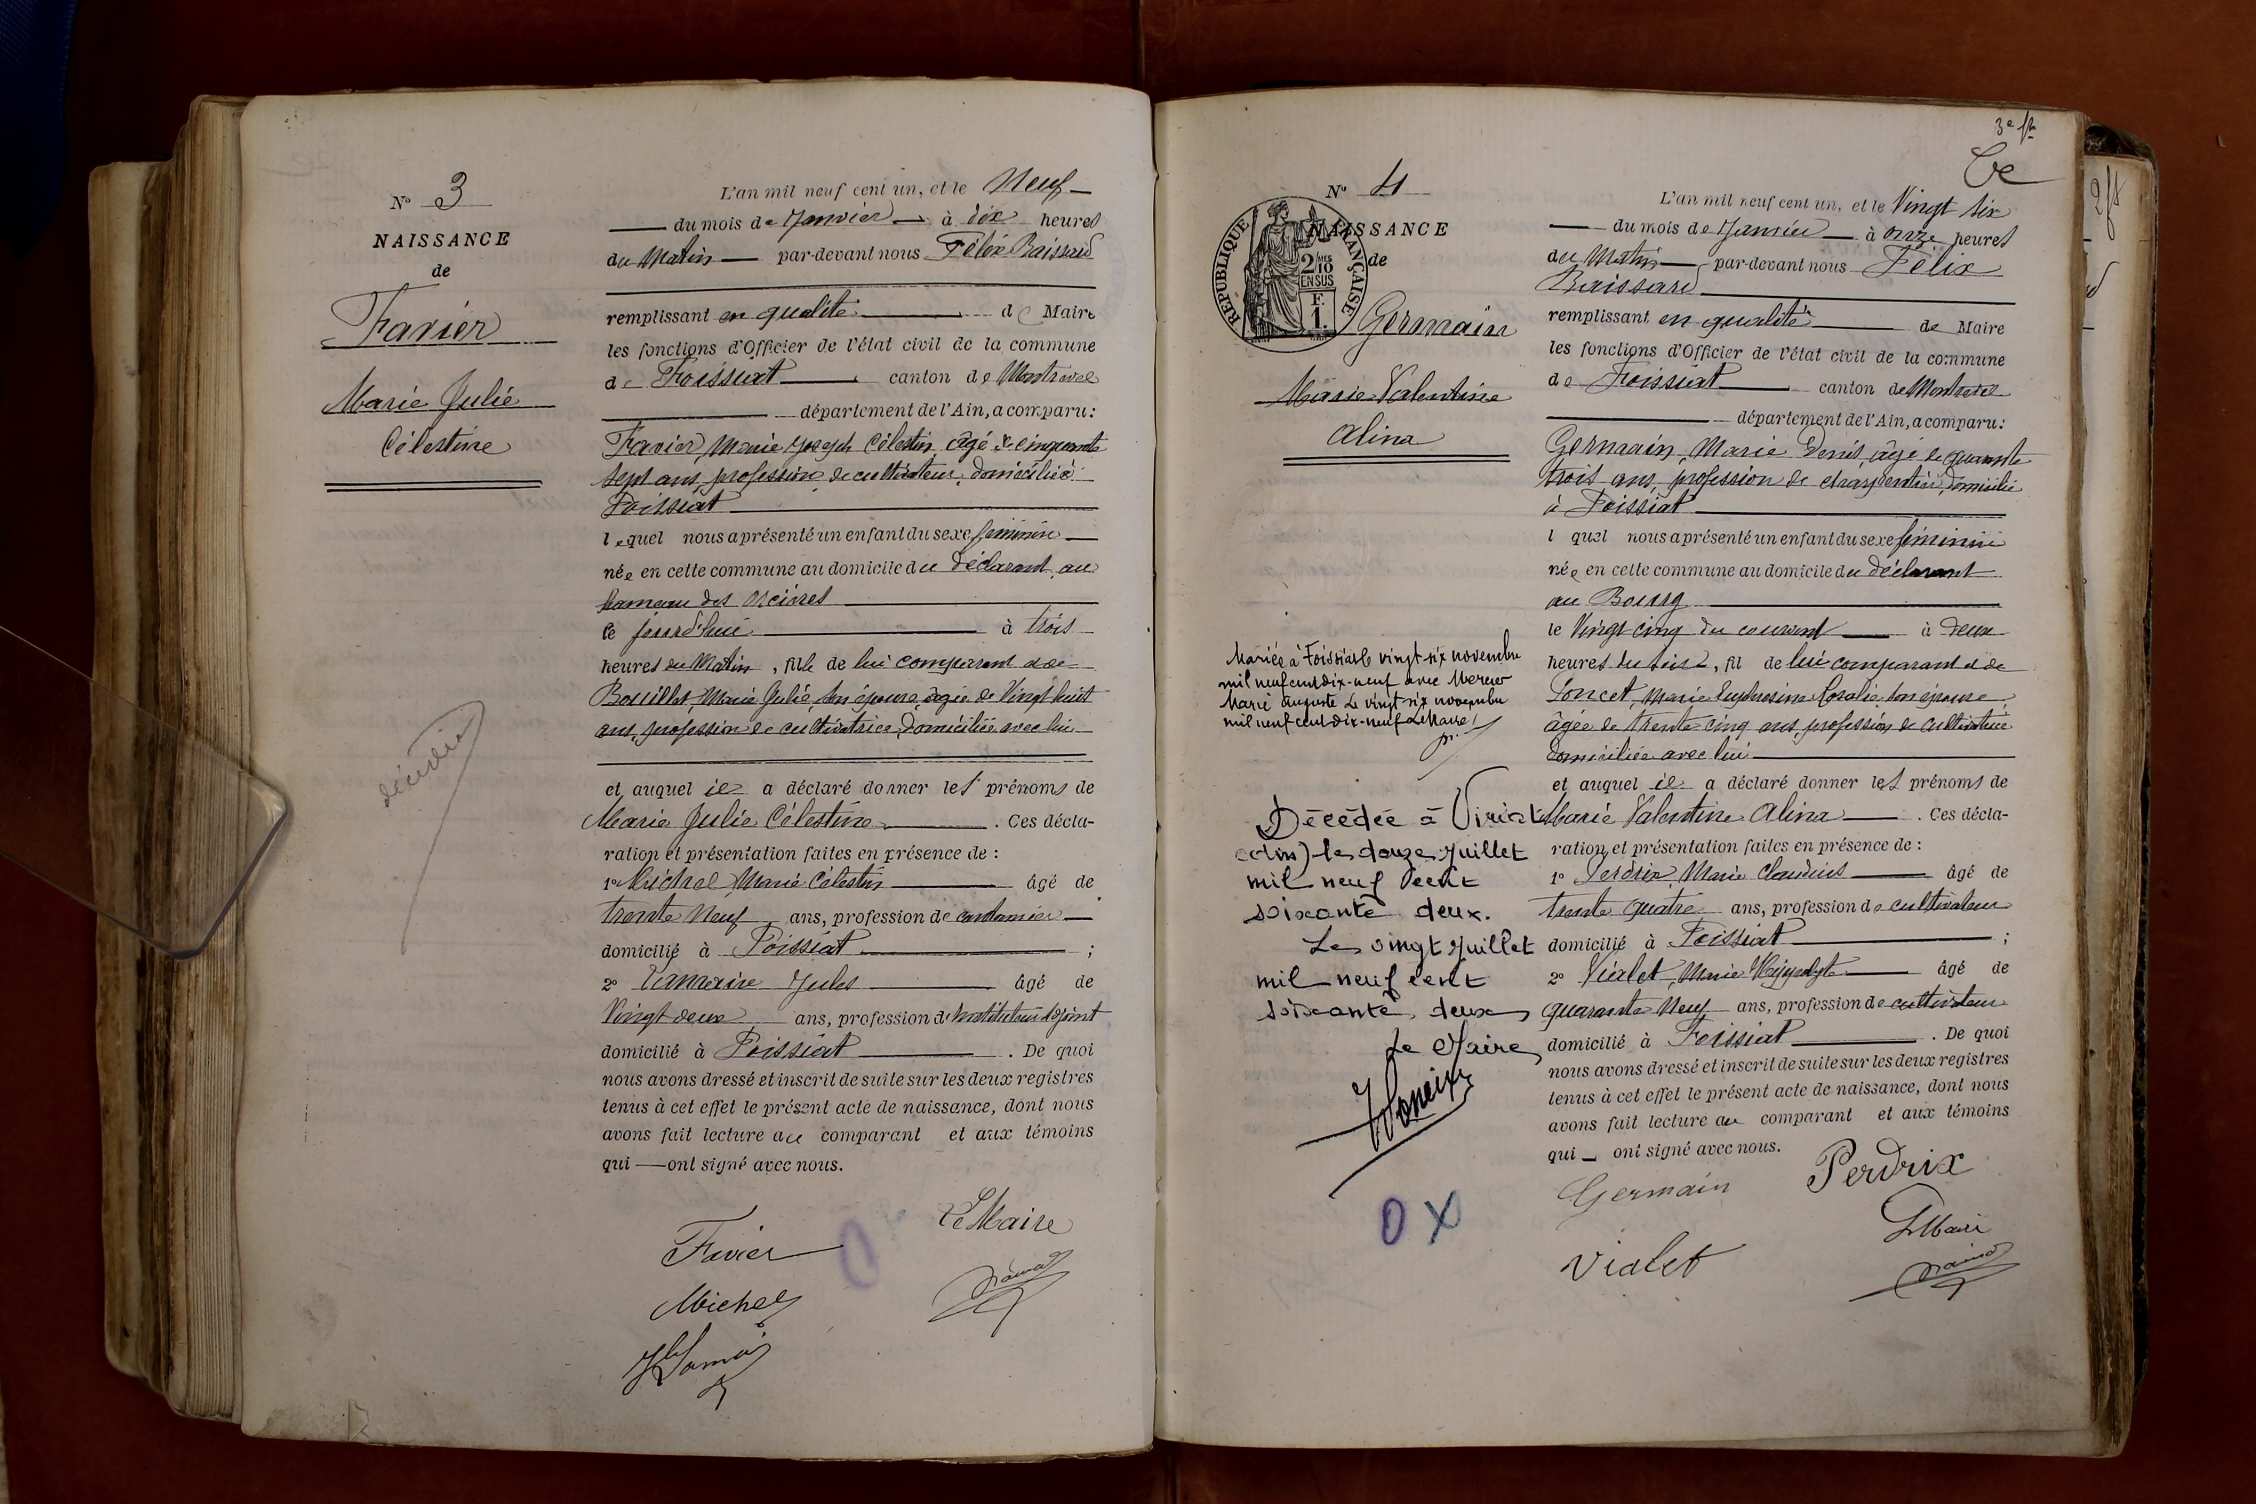 N° 3
NAISSANCE
de
Favier
Marie Julie
Célestine
décédée
L'an mil neuf cent un, et le Neuf
du mois de Janvier à dix heures
du Matin par-devant nous Félix Baissard
remplissant en qualité de Maire
les fonctions d'Officier de l'état civil de la commune
de Foissiat canton de Montrevel
département de l'Ain, a comparu:
Favier, Marie Joseph Célestin, âgé de cinquante
sept ans, profession de cultivateur, domicilié à
Foissiat
lequel nous a présenté un enfant du sexe féminin
née en cette commune au domicile du déclarant, au
hameau des
le jourd'hui à trois
heures du Matin, fille de lui comparant et de
Bouillet, Marie Julie, son épouse, âgée de Vingt huit
ans, profession de cultivatrice, domiciliée avec lui
et auquel il a déclaré donner les prénoms de
Marie Julie Célestine. Ces décla-
ration et présentation faites en présence de :
1° Michel Marie Célestin âgé de
trente Neuf ans, profession de
domicilié à Foissiat ;
2° Jules âgé de
Vingt deux ans, profession d'Instituteur adjoint
domicilié à Foissiat. De quoi
nous avons dressé et inscrit de suite sur les deux registres
tenus à cet effet le présent acte de naissance, dont nous
avons fait lecture au comparant et aux témoins
qui ont signé avec nous.
Favier
Le Maire
Michel
3e ft
N° 4
NAISSANCE
de
RÉPUBLIQUE FRANÇAISE
2/10 EN SUS
F. 1.
Germain
Marie Valentine
Alina
Mariée à Foissiat le vingt-six novembre
mil neuf cent dix-neuf avec Mercier
Marie Auguste Le vingt-six novembre
mil neuf cent dix-neuf Le Maire
Décédée à Viriat
(Ain) le douze Juillet
mil neuf cent
soixante deux.
Le vingt Juillet
mil neuf cent
soixante deux
Le Maire
O X
L'an mil neuf cent un, et le Vingt six
du mois de Janvier à onze heures
du Matin par-devant nous Félix
Baissard
remplissant en qualité de Maire
les fonctions d'Officier de l'état civil de la commune
de Foissiat canton de Montrevel
département de l'Ain, a comparu:
Germain, Marie Denis, âgé de quarante
trois ans, profession de charpentier, domicilié
à Foissiat
l quel nous a présenté un enfant du sexe féminin
née en cette commune au domicile du déclarant
au Bourg
le Vingt cinq du courant à deux
heures du soir, fil de lui comparant et de
Poncet, Marie Euphrosine Rosalie, son épouse,
âgée de trente cinq ans, profession de cultivatrice
domiciliée avec lui
et auquel il a déclaré donner les prénoms de
Marie Valentine Alina. Ces décla-
ration et présentation faites en présence de :
1° Perdrix, Marie Claudius âgé de
trente quatre ans, profession de cultivateur
domicilié à Foissiat ;
2° Vialet, Marie Hippolyte âgé de
quarante Neuf ans, profession de cultivateur
domicilié à Foissiat. De quoi
nous avons dressé et inscrit de suite sur les deux registres
tenus à cet effet le présent acte de naissance, dont nous
avons fait lecture au comparant et aux témoins
qui ont signé avec nous.
Germain
Perdrix
Vialet
Le Maire